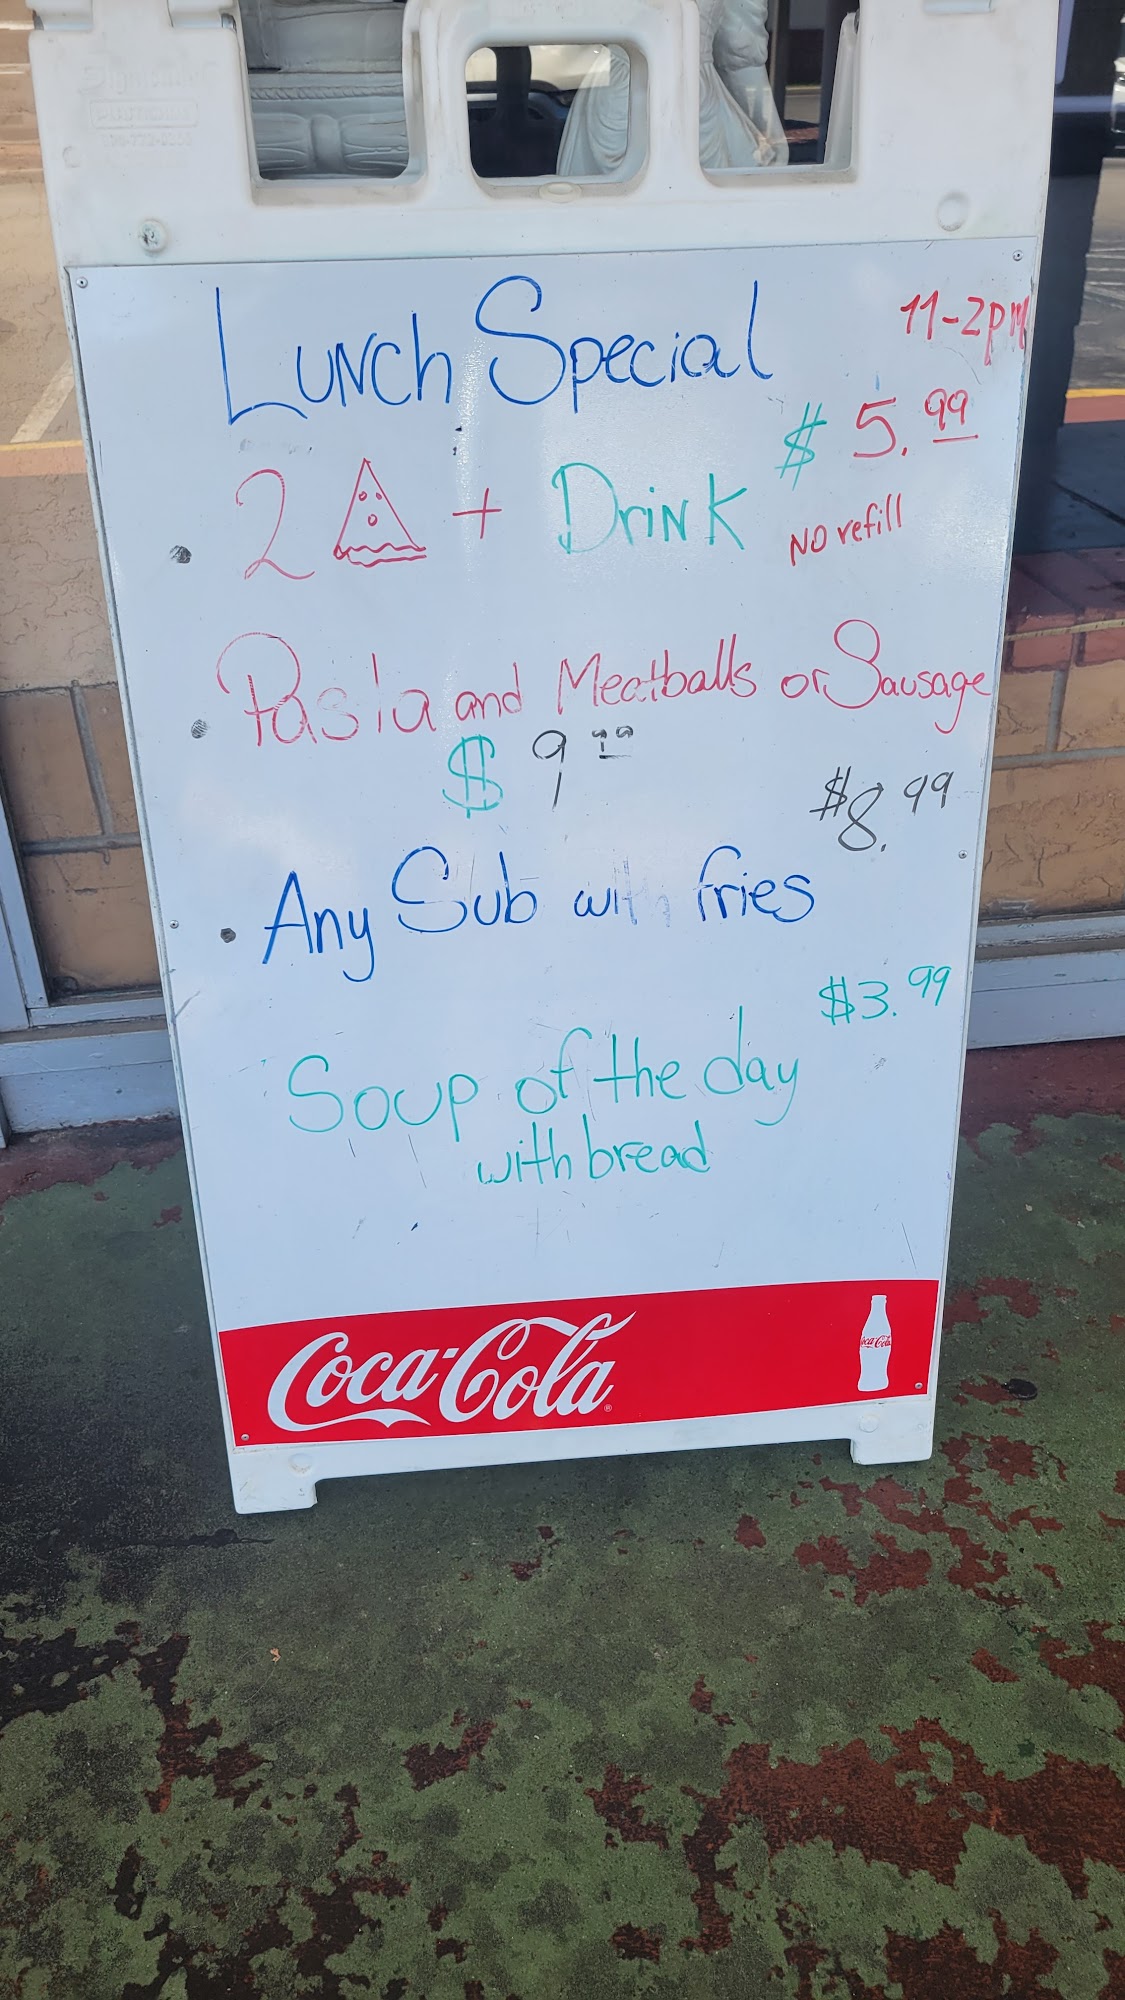 Lunch Special 11-2pm
$5.99
2 + Drink No refill
Pasta and Meatballs or Sausage
$9.99
$8.99
Any Sub with fries
$3.99
Soup of the day
with bread
Coca-Cola
Coca-Cola